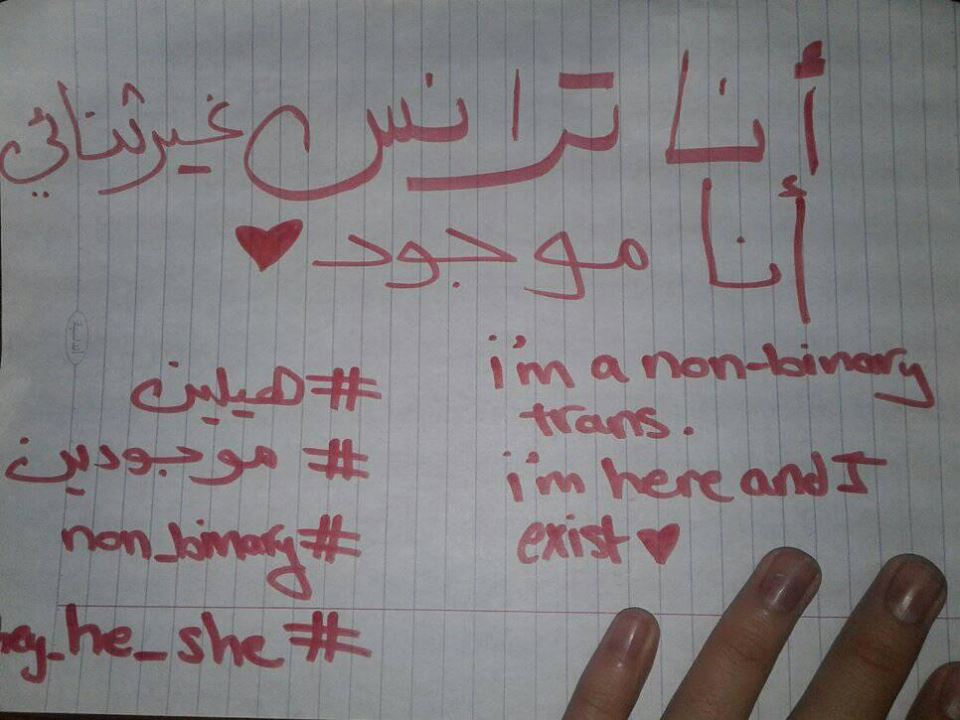 أنا ترانس غير ثنائي
أنا موجود ♥
#هيلين
#موجودين
non_binary#
hey_he_she#
i'm a non-binary
trans.
i'm here and I
exist ♥